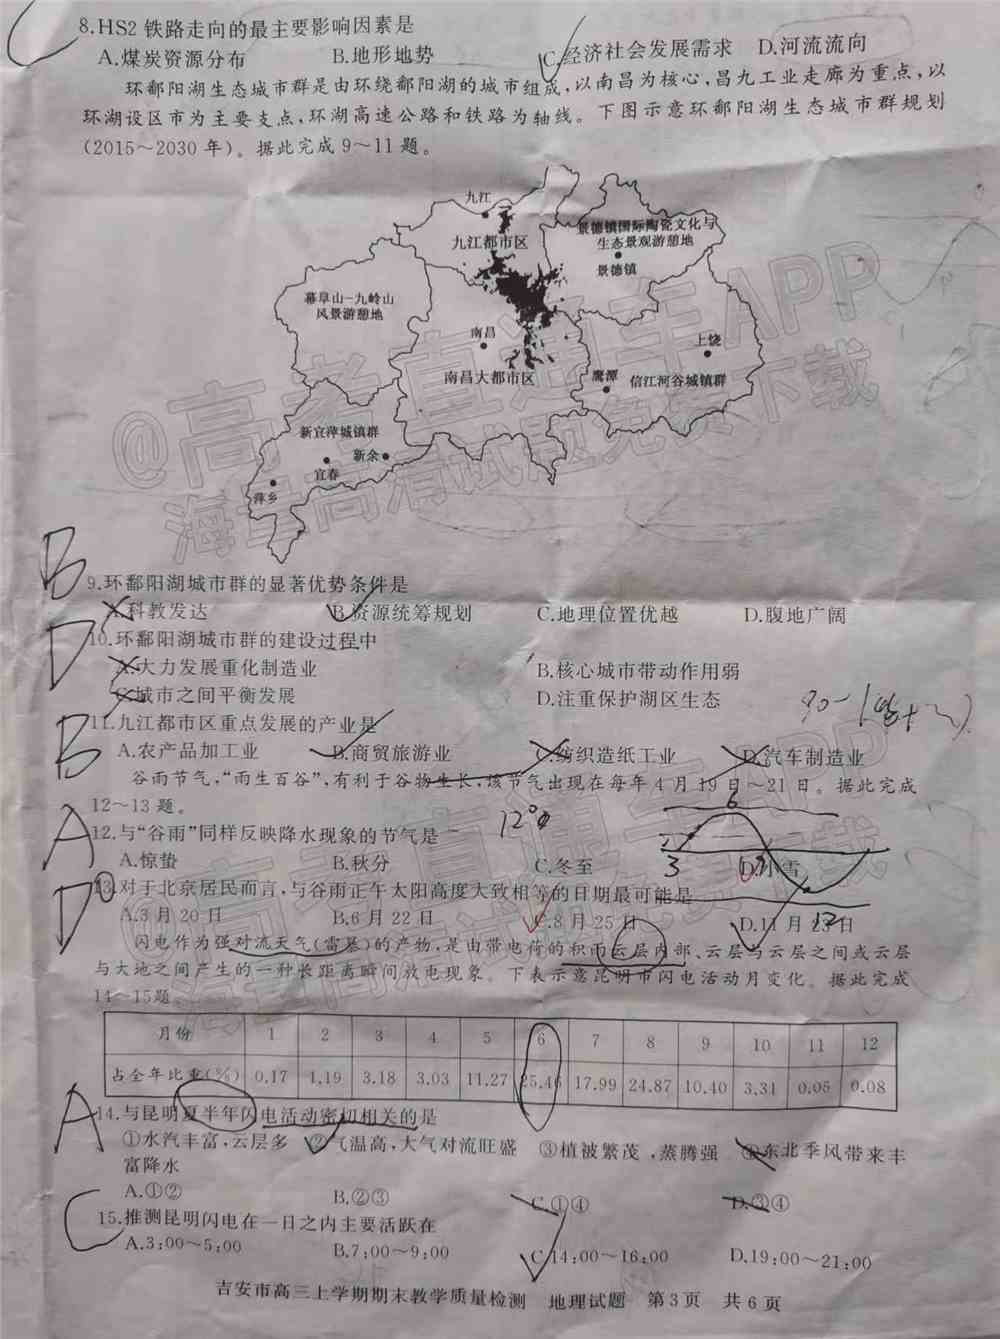 8.HS2铁路走向的最主要影响因素是
A.煤炭资源分布 B.地形地势 C.经济社会发展需求 D.河流流向
环鄱阳湖生态城市群是由环绕鄱阳湖的城市组成,以南昌为核心,昌九工业走廊为重点,以
环湖设区市为主要支点,环湖高速公路和铁路为轴线。下图示意环鄱阳湖生态城市群规划
(2015～2030年)。据此完成9～11题。
九江
九江都市区
景德镇国际陶瓷文化与
生态景观游憩地
景德镇
幕阜山-九岭山
风景游憩地
南昌
南昌大都市区
上饶
鹰潭
信江河谷城镇群
新宜萍城镇群
新余
宜春
萍乡
@高考直通车APP
海量高清试题免费下载
B
9.环鄱阳湖城市群的显著优势条件是
A.科教发达 B.资源统筹规划 C.地理位置优越 D.腹地广阔
D
10.环鄱阳湖城市群的建设过程中
A.大力发展重化制造业 B.核心城市带动作用弱
C.城市之间平衡发展 D.注重保护湖区生态
B
11.九江都市区重点发展的产业是
A.农产品加工业 B.商贸旅游业 C.纺织造纸工业 D.汽车制造业
谷雨节气,“雨生百谷”,有利于谷物生长,该节气出现在每年4月19日～21日。据此完成
12～13题。
A
12.与“谷雨”同样反映降水现象的节气是
A.惊蛰 B.秋分 C.冬至 D.小雪
6
3
D
13.对于北京居民而言,与谷雨正午太阳高度大致相等的日期最可能是
A.3月20日 B.6月22日 C.8月25日 D.11月22日
闪电作为强对流天气(雷暴)的产物,是由带电荷的积雨云层内部、云层与云层之间或云层
与大地之间产生的一种长距离瞬间放电现象。下表示意昆明市闪电活动月变化。据此完成
14～15题。
月份 1 2 3 4 5 6 7 8 9 10 11 12
占全年比重(%) 0.17 1.19 3.18 3.03 11.27 25.46 17.99 24.87 10.40 3.31 0.05 0.08
A
14.与昆明夏半年闪电活动密切相关的是
①水汽丰富,云层多 ②气温高,大气对流旺盛 ③植被繁茂,蒸腾强 ④东北季风带来丰
富降水
A.①② B.②③ C.①④ D.③④
C
15.推测昆明闪电在一日之内主要活跃在
A.3:00～5:00 B.7:00～9:00 C.14:00～16:00 D.19:00～21:00
吉安市高三上学期期末教学质量检测 地理试题 第3页 共6页